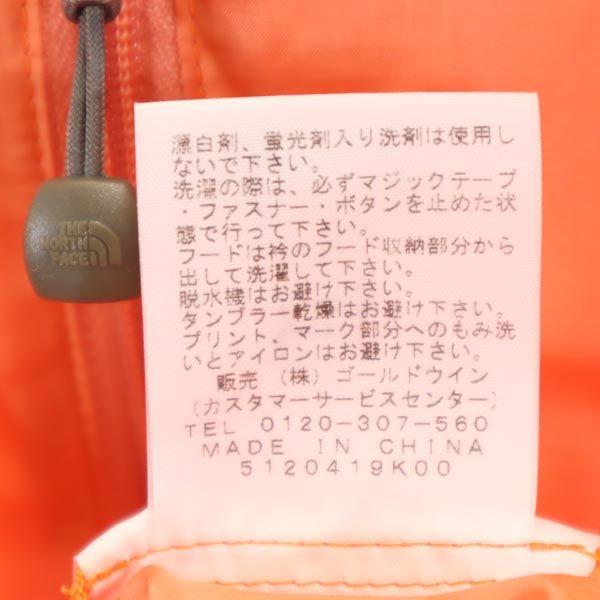 THE
NORTH
FACE
漂白剤、蛍光剤入り洗剤は使用し
ないで下さい。
洗濯の際は、必ずマジックテープ
・ファスナー・ボタンを止めた状
態で行って下さい。
フードは衿のフード収納部分から
出して洗濯して下さい。
脱水機はお避け下さい。
タンブラー乾燥はお避け下さい。
プリント、マーク部分へのもみ洗
いとアイロンはお避け下さい。
販売 (株) ゴールドウイン
(カスタマーサービスセンター)
TEL 0120-307-560
MADE IN CHINA
5120419K00